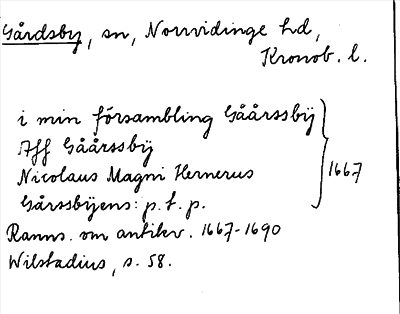 Gårdsby, sn, Norrvidinge hd,
Kronob. l.
i min försambling Gåårssbÿ
Aff Gåårssbÿ
Nicolaus Magni Hernerus
Gårssbÿens: p. t. p.
1667
Ranns. om antikv. 1667-1690
Wilstadius, s. 58.